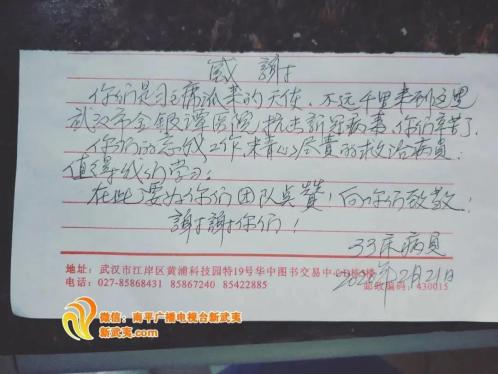 感 謝
你们是习主席派来的天使、不远千里来到这里
武汉市金银潭医院，抗击新冠病毒，你们辛苦了.
你们的亲贱工作，精心尽责的救治病員.
值得我们学习.
在此要为你们团队点赞，向你们致敬.
謝謝你们！
33床病員
2020年2月21日
地址：武汉市江岸区黄浦科技园特19号华中图书交易中心
电话：027-85868431 85867240 85422885 邮政编码：430015
微信：南平广播电视台新武夷
新武夷.com